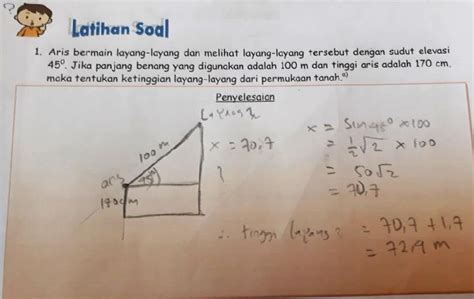 Latihan Soal
1. Aris bermain layang-layang dan melihat layang-layang tersebut dengan sudut elevasi
45⁰. Jika panjang benang yang digunakan adalah 100 m dan tinggi aris adalah 170 cm,
maka tentukan ketinggian layang-layang dari permukaan tanah.
Penyelesaian
100 m
x = 70,7
45°
aris
170 cm
x = sin 45° x 100
= 1/2 √2 x 100
= 50√2
= 70,7
∴ tinggi layang² = 70,7 + 1,7
= 72,4 m